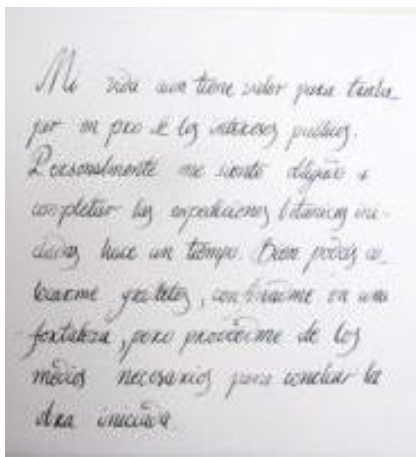 Mi vida aun tiene valor para traba-
jar en pro de los intereses publicos.
Personalmente me siento obligado a
completar las expediciones botanicas ini-
ciadas hace un tiempo. Bien podeis co-
locarme grilletes, confinarme en una
fortaleza, pero proveedme de los
medios necesarios para concluir la
obra iniciada